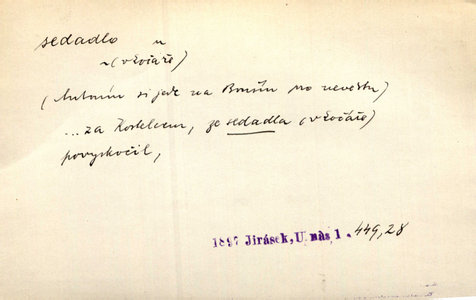 sedadlo n
~ (v kočáře)
(Antonín si jede na Brušín pro nevěstu)
...za Kostelcem, ze sedadla (v kočáře)
povyskočil,
1897 Jirásek, U nás 1. 449,28